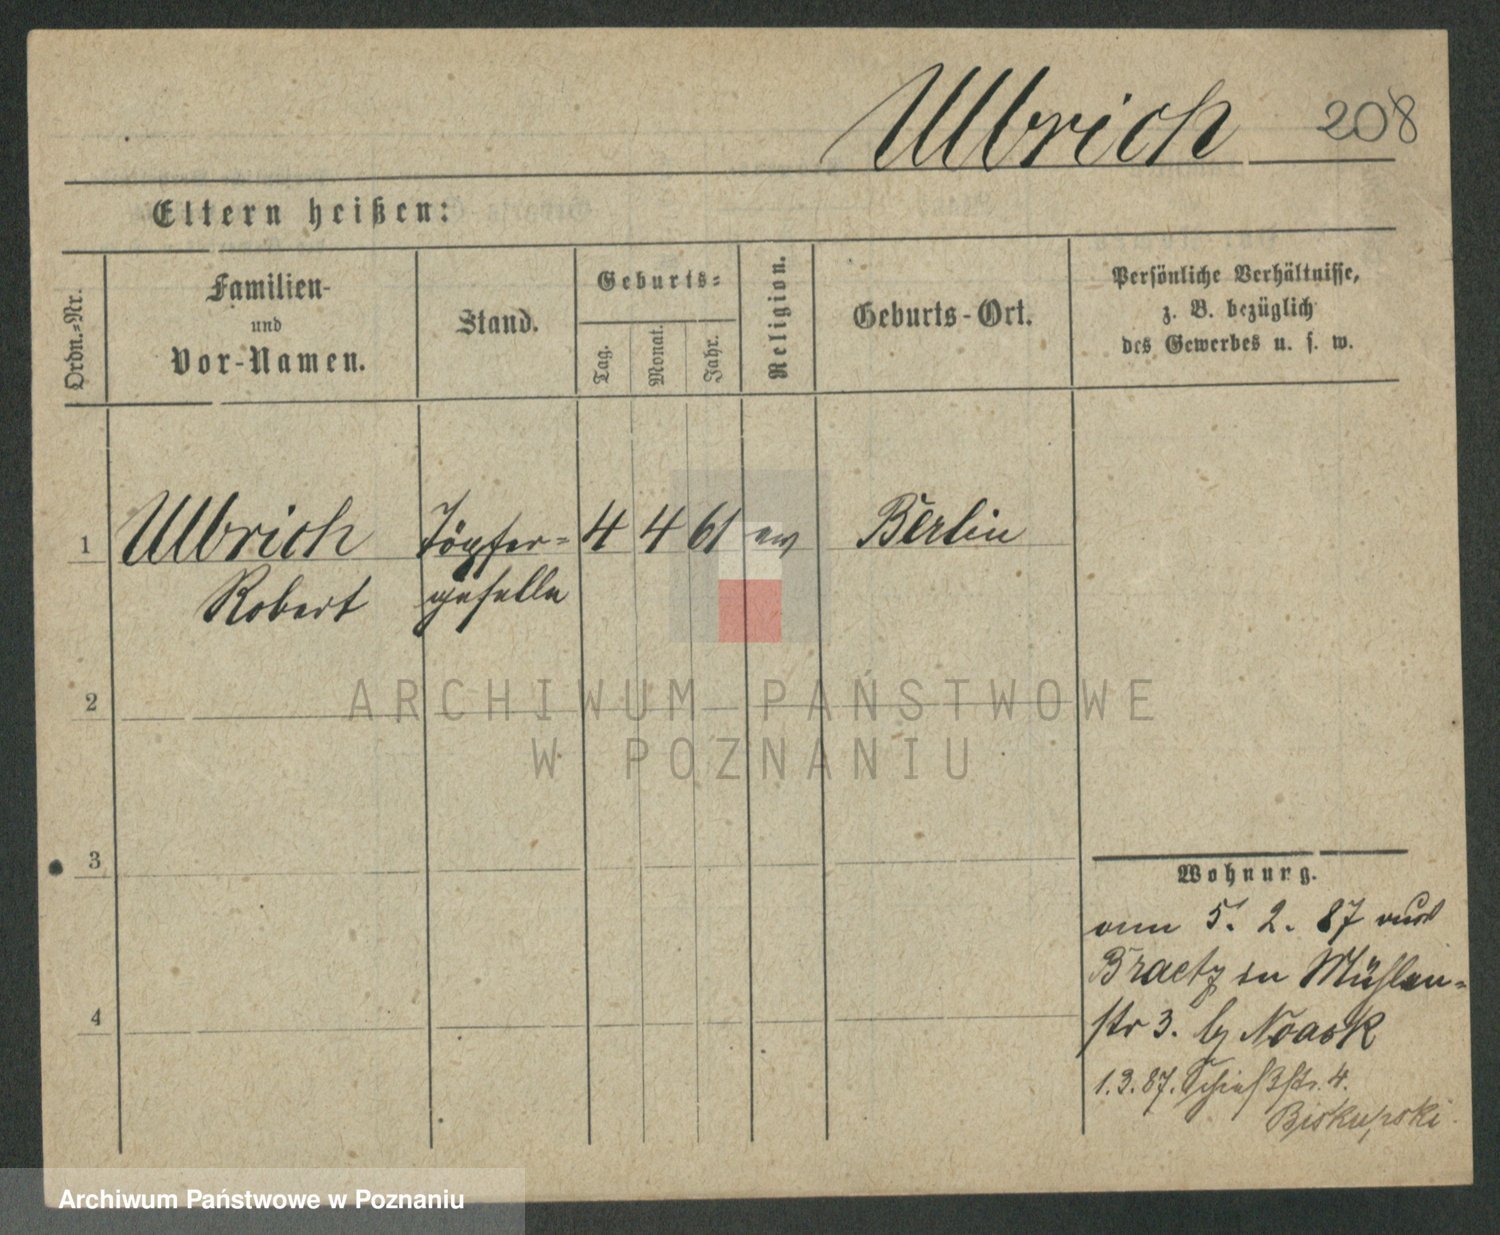 Ulbrich 208
Eltern heißen:
Ordn.-Nr.
Familien-
und
Vor-Namen.
Stand.
Geburts-
Tag.
Monat.
Jahr.
Religion.
Geburts-Ort.
Persönliche Verhältnisse,
z. B. bezüglich
des Gewerbes u. s. w.
1 Ulbrich Töpfer- 4 4 61 ev Berlin
Robert geselle
2
3
4
Wohnung.
5. 2. 87 aus
Braetz in Mühlen-
str 3. by Noack
1.3.87. Schießstr. 4.
Biskupski.
ARCHIWUM PAŃSTWOWE
W POZNANIU
Archiwum Państwowe w Poznaniu